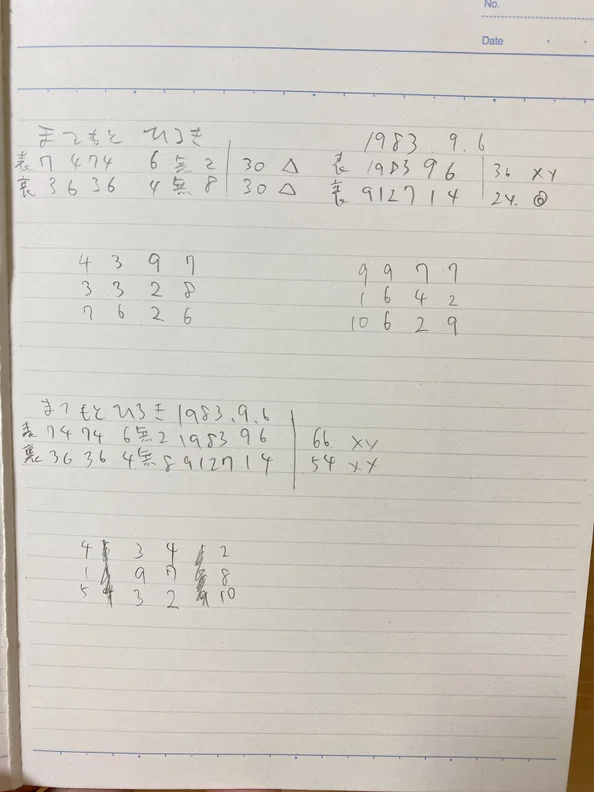 No.
Date
まつもと ひろき
表 7 4 7 4 6 無 2 30 △
裏 3 6 3 6 4 無 8 30 △
1983. 9. 6
表 1983 9 6 36 XY
裏 91271 4 24. ◎
4 3 9 7
3 3 2 8
7 6 2 6
9 9 7 7
1 6 4 2
10 6 2 9
まつもとひろき 1983. 9. 6
表 7474 6無2 1983 96 66 XY
裏 3636 4無8 91271 4 54 XY
4 3 4 2
1 9 7 8
5 3 2 10